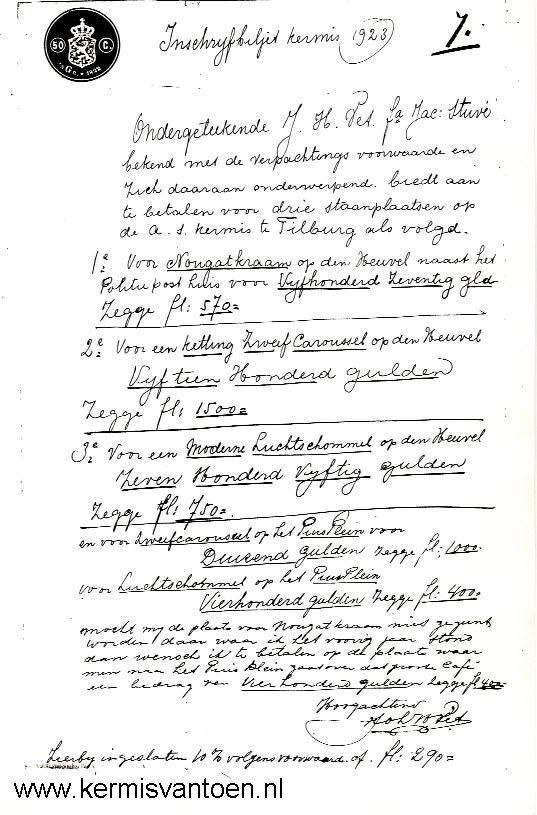 50 C.
Inschrijfbiljet kermis 1923
7.
Ondergeteekende J. H. Vet. fa Jac: Stuvé
bekend met de verpachtings voorwaarde en
zich daaraan onderwerpend. biedt aan
te betalen voor drie staanplaatsen op
de a. s. kermis te Tilburg als volgd.
1e Voor Nougatkraam op den Heuvel naast het
Politiepost huis voor Vijfhonderd Zeventig gld
Zegge fl: 570=
2e Voor een ketting Zweef Caroussel op den Heuvel
Vijftien Honderd gulden
Zegge fl: 1500=
3e Voor een Moderne Luchtschommel op den Heuvel
Zeven Honderd Vijftig gulden
Zegge fl: 750=
en voor Zweefcaroussel op het Pius Plein voor
Duizend gulden Zegge fl; 1000-
voor Luchtschommel op het Pius Plein
Vierhonderd gulden Zegge fl: 400=
mocht mij de plaats voor Nougatkraam niet gegund
worden daar waar ik het vorig jaar stond
dan wensch ik te betalen op de plaats waar
men naa het Pius Plein gaat over dat groote Café
een bedrag van Vier honderd gulden zegge fl 400=
Hoogachtend
Hierbij ingesloten 10% volgens voorwaard. of. fl: 290=
www.kermisvantoen.nl